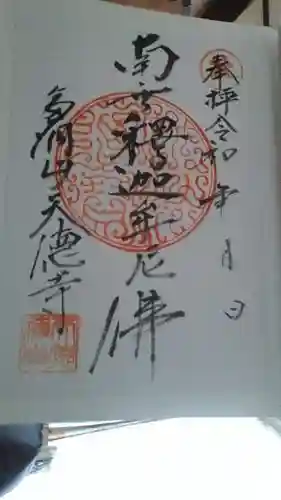 奉拝 令和 年 月 日
南無釋迦牟尼佛
多聞山天德寺